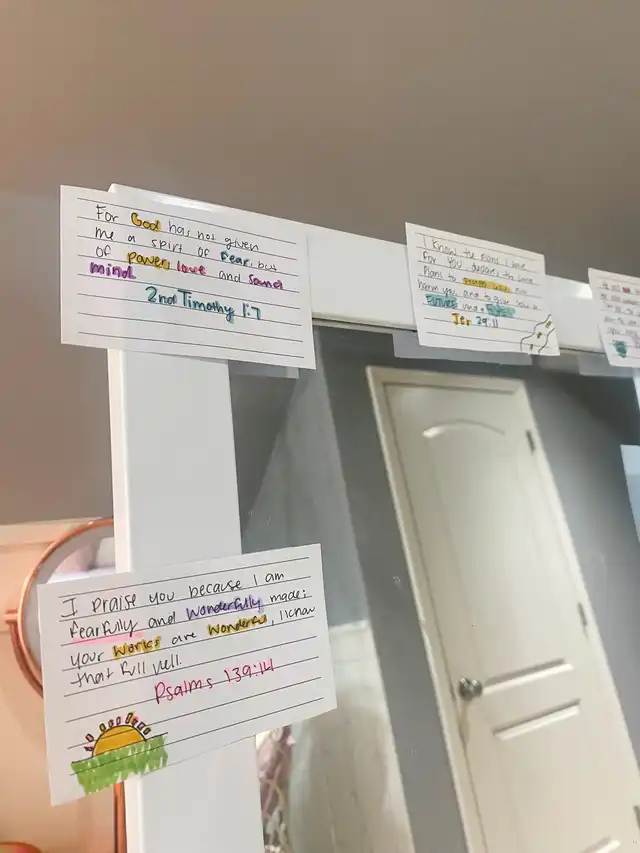 For God has not given
me a spirit of fear, but
of power, love and sound
mind.
2nd Timothy 1:7
I know the plans I have
for you declares the Lord
Plans to
harm you and to give you a
FUTURE and a
Jer 29:11
I praise you because I am
fearfully and wonderfully made;
your works are wonderful, I know
that full well.
Psalms 139:14